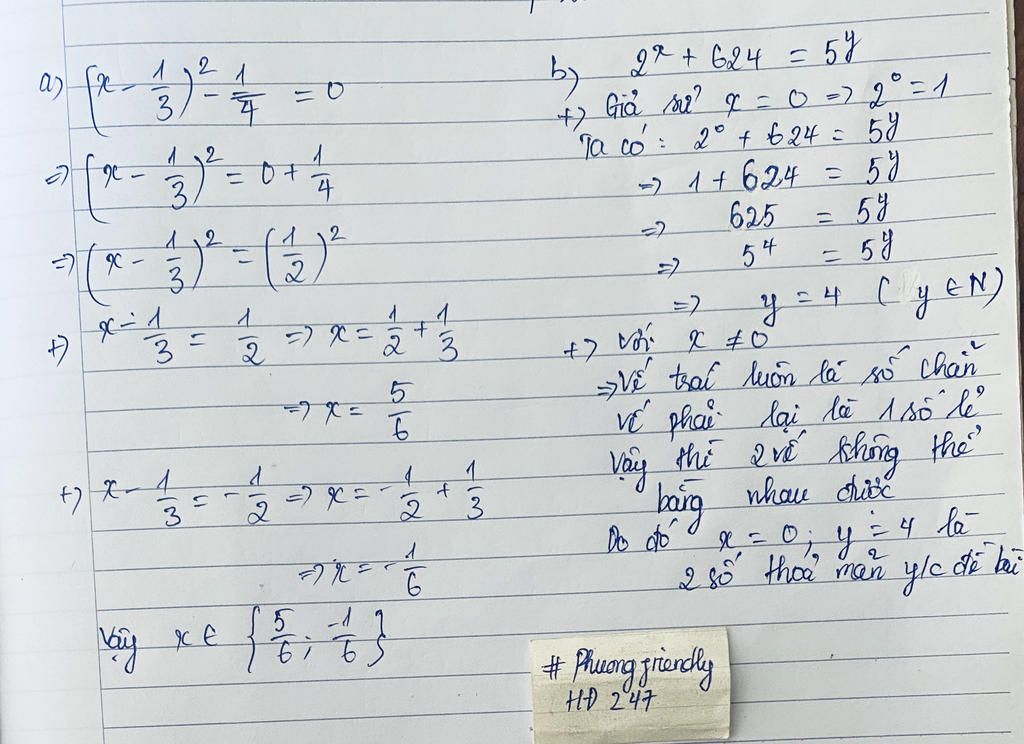 a) (x - 1/3)² - 1/4 = 0
=> (x - 1/3)² = 0 + 1/4
=> (x - 1/3)² = (1/2)²
+) x - 1/3 = 1/2 => x = 1/2 + 1/3
=> x = 5/6
+) x - 1/3 = -1/2 => x = -1/2 + 1/3
=> x = -1/6
Vậy x ∈ {5/6; -1/6}
b) 2ˣ + 624 = 5ʸ
+) Giả sử x = 0 => 2⁰ = 1
Ta có: 2⁰ + 624 = 5ʸ
=> 1 + 624 = 5ʸ
=> 625 = 5ʸ
=> 5⁴ = 5ʸ
=> y = 4 (y ∈ N)
+) Với x ≠ 0
=> Vế trái luôn là số chẵn
vế phải lại là 1 số lẻ
Vậy thì 2 vế không thể
bằng nhau được
Do đó x = 0; y = 4 là
2 số thoả mãn y/c đề bài
# Phuongfriendly
HĐ 247